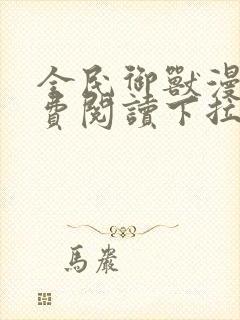 全民御獸漫
費閱讀下拉
馬嚴